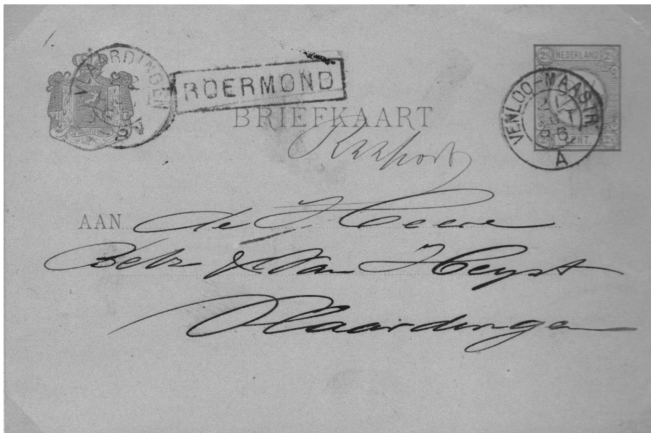 VLAARDINGEN
ROERMOND
NEDERLAND
VENLOO-MAASTR
A
BRIEFKAART
AAN de H Heeren
Betz & Van Heyst
Vlaardingen